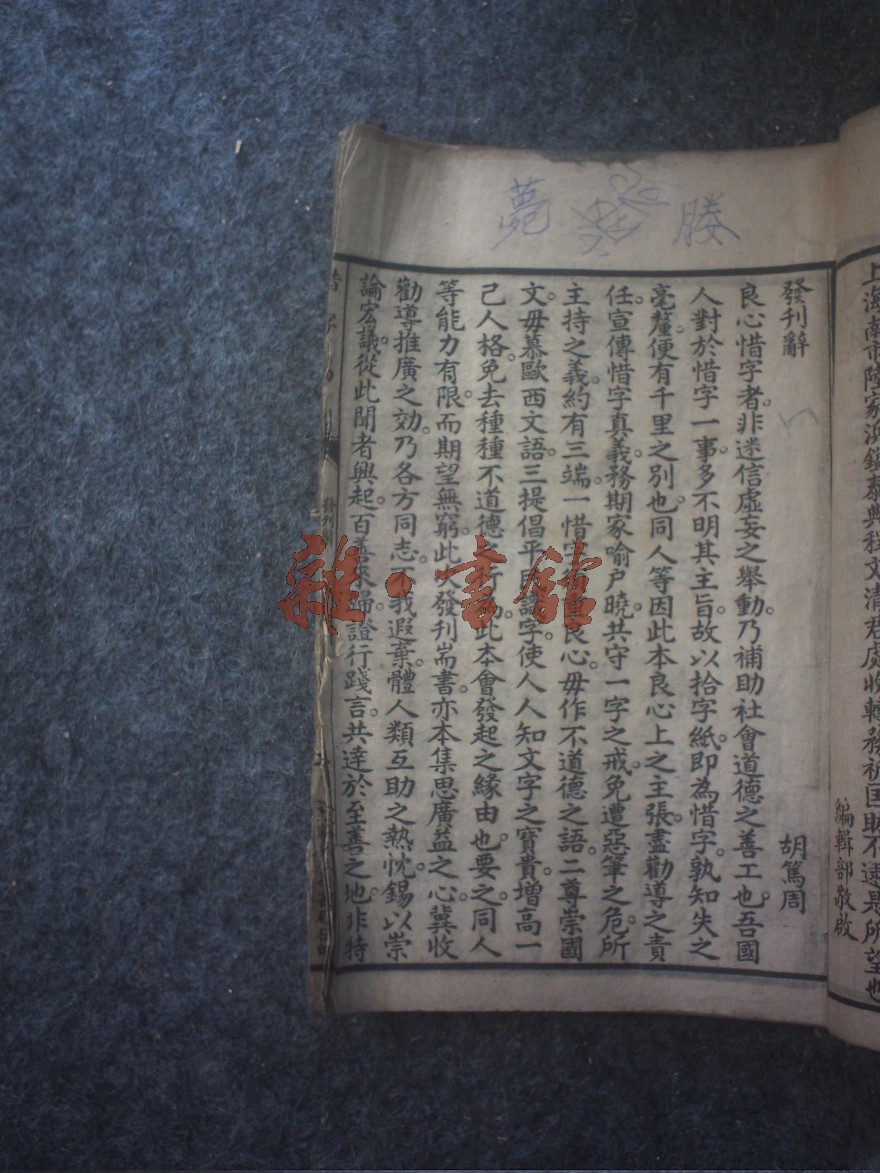 上海南市陸家浜鎮泰興程文清君處收轉務祈匡助不逮是所望也
編輯部敬啟
薨 媵
發刊辭
胡篤周
良心惜字者。非迷信虛妄之舉動。乃補助社會道德之善工也。吾國
人對於惜字一事。多不明其主旨。故以拾字紙即為惜字。孰知失之
毫釐。便有千里之別也。同人等因此本良心上之主張。盡勸導之責
任。宣傳惜字真義。務期家喻戶曉。共守一字之戒。免遭惡筆之危。所
主持之義。約有三端。一惜字 重良心。毋作不道德之語。二尊崇國
文。毋慕歐西文語。三提倡平民識字。使人人知文字之寶貴。增高一
己人格。免去種種不道德之行為。此本會發起之緣由也。要之。同人
等能力有限。而期望無窮。此 發刊耑書。亦本集思廣益之心。冀收
勸導推廣之効。乃各方同志。不我遐棄。體人類互助之熱忱。錫以崇
論宏議。從此聞者興起。百善來歸。證行踐言。共達於至善之地。非特
發刊
雜·書館